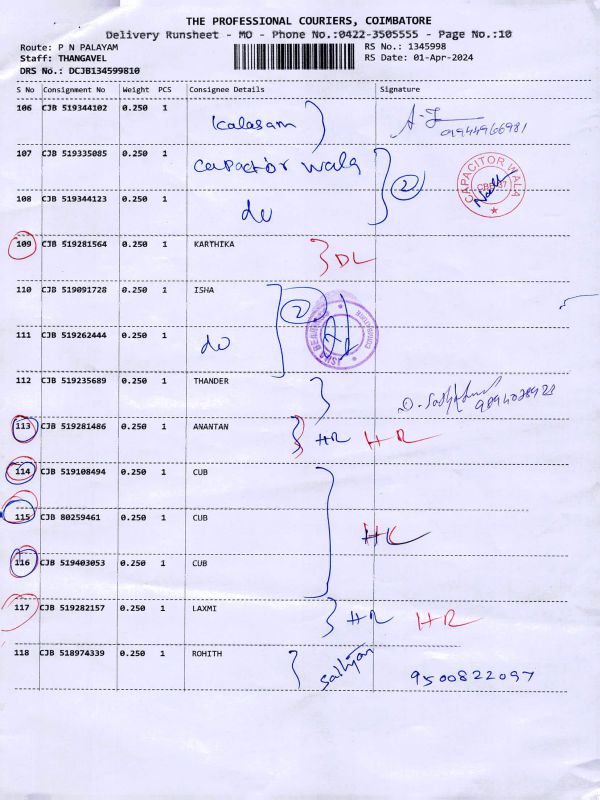 THE PROFESSIONAL COURIERS, COIMBATORE
Delivery Runsheet - MO - Phone No.:0422-3505555 - Page No.:10
Route: P N PALAYAM RS No.: 1345998
Staff: THANGAVEL RS Date: 01-Apr-2024
DRS No.: DCJB134599810
S No Consignment No Weight PCS Consignee Details Signature
106 CJB 519344102 0.250 1 Kalasam
107 CJB 519335085 0.250 1 Capactor wala 2 CAPACITOR WALA
108 CJB 519344123 0.250 1 do
109 CJB 519281564 0.250 1 KARTHIKA DL
110 CJB 519091728 0.250 1 ISHA 2
111 CJB 519262444 0.250 1 do
112 CJB 519235689 0.250 1 THANDER
113 CJB 519281486 0.250 1 ANANTAN HR HR
114 CJB 519108494 0.250 1 CUB
115 CJB 80259461 0.250 1 CUB
116 CJB 519403053 0.250 1 CUB
117 CJB 519282157 0.250 1 LAXMI HR HR
118 CJB 518974339 0.250 1 ROHITH 9500822097